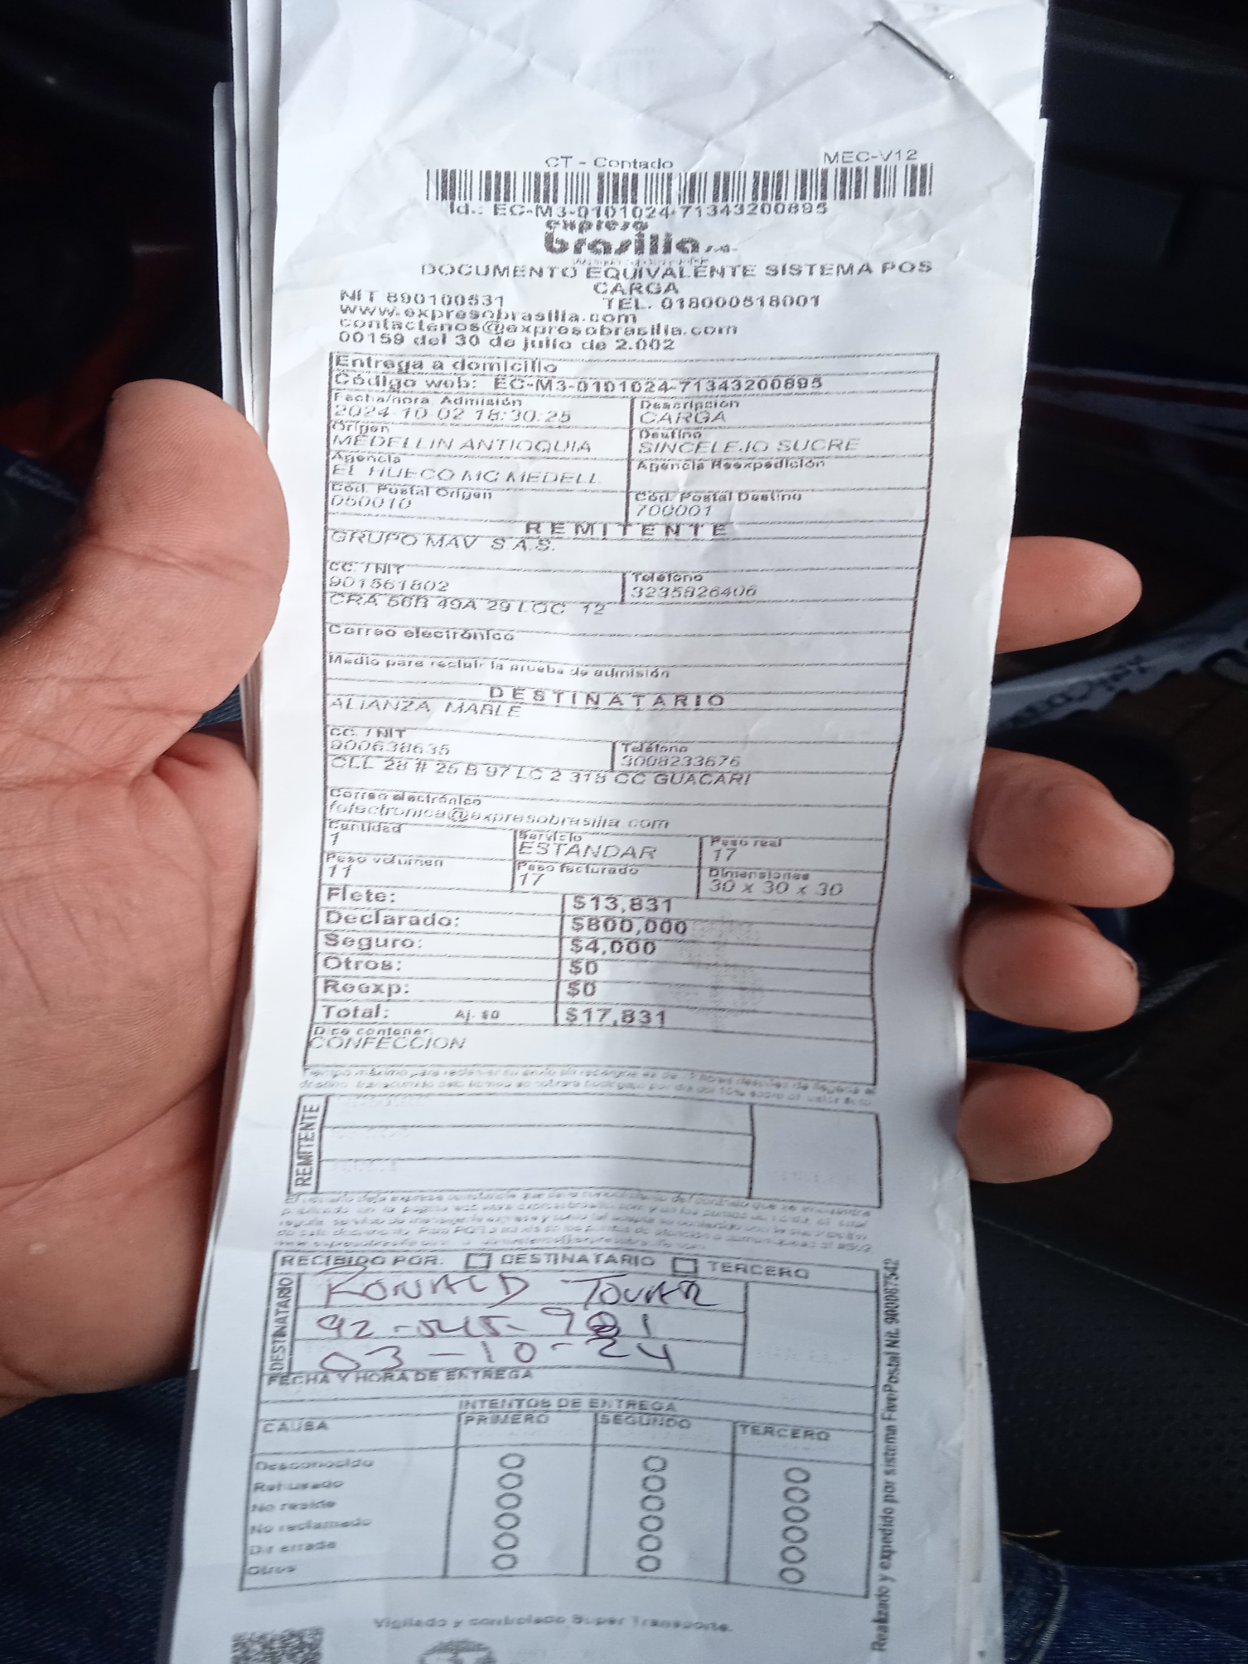 CT - Contado MEC-V12
Id.: EC-M3-0101024-71343200895
expreso
brasilia s.a.
DOCUMENTO EQUIVALENTE SISTEMA POS
CARGA
NIT 890100531 TEL. 018000518001
www.expresobrasilia.com
contactenos@expresobrasilia.com
00159 del 30 de julio de 2.002
Entrega a domicilio
Código web: EC-M3-0101024-71343200895
Fecha/hora Admisión Descripción
2024-10-02 18:30:25 CARGA
Origen Destino
MEDELLIN ANTIOQUIA SINCELEJO SUCRE
Agencia Agencia Reexpedición
EL HUECO MC MEDELL
Cód. Postal Origen Cód. Postal Destino
050010 700001
REMITENTE
GRUPO MAV S.A.S.
CC. / NIT Teléfono
901561802 3235826406
CRA 56B 49A 29 LOC 12
Correo electrónico
Medio para recibir la prueba de admisión
DESTINATARIO
ALIANZA MABLE
CC. / NIT Teléfono
900638635 3008233676
CLL 28 # 25 B 97 LC 2 315 CC GUACARI
Correo electrónico
felectronica@expresobrasilia.com
Cantidad Servicio Peso real
1 ESTANDAR 17
Peso volumen Peso facturado Dimensiones
11 17 30 x 30 x 30
Flete: $13,831
Declarado: $800,000
Seguro: $4,000
Otros: $0
Reexp: $0
Total: Aj. $0 $17,831
Dice contener:
CONFECCION
REMITENTE
RECIBIDO POR: DESTINATARIO TERCERO
DESTINATARIO
RONALD TOVAR
03-10-24
FECHA Y HORA DE ENTREGA
INTENTOS DE ENTREGA
CAUSA PRIMERO SEGUNDO TERCERO
Desconocido
Rehusado
No reside
No reclamado
Dir errada
Otros
Realizado y expedido por sistema FivePostal Nit. 900087542
Vigilado y controlado Super Transporte.